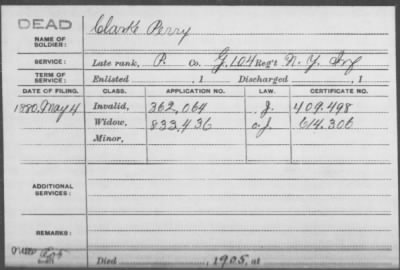 DEAD
NAME OF SOLDIER: Clarke Perry
SERVICE: Late rank, P. Co. G, 104 Reg't N. Y. Inf
TERM OF SERVICE: Enlisted , 1 Discharged , 1
DATE OF FILING. CLASS. APPLICATION NO. LAW. CERTIFICATE NO.
1880, May 4 Invalid, 362,064 J. 409.498
Widow, 833,436 614.306
Minor,
ADDITIONAL SERVICES:
REMARKS:
Died , 1905, at